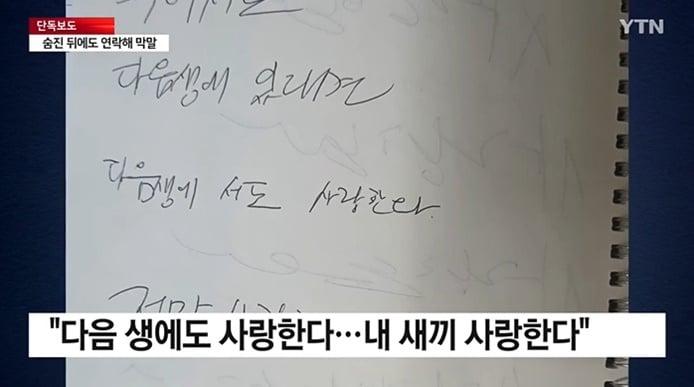 단독보도
숨진 뒤에도 연락해 막말
YTN
다음생에 있다면
다음생에 서도 사랑한다.
"다음 생에도 사랑한다…내 새끼 사랑한다"